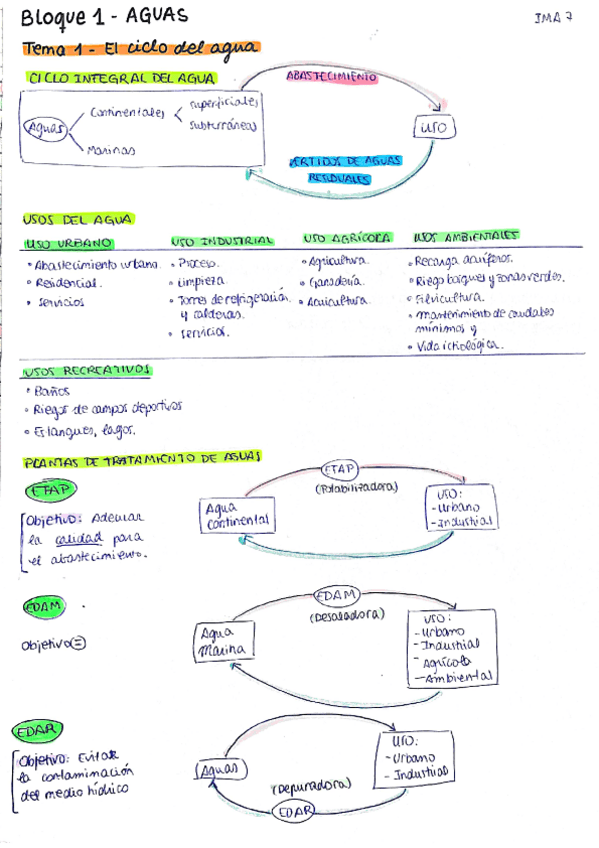 Bloque 1 - AGUAS
IMA 7
Tema 1 - El ciclo del agua
CICLO INTEGRAL DEL AGUA
ABASTECIMIENTO
Aguas
Continentales
superficiales
subterráneas
Marinas
USO
VERTIDOS DE AGUAS
RESIDUALES
USOS DEL AGUA
USO URBANO
• Abastecimiento urbano.
• Residencial.
• Servicios
USO INDUSTRIAL
• Proceso.
• Limpieza.
• Torres de refrigeración
y calderas.
• Servicios.
USO AGRÍCOLA
• Agricultura.
• Ganadería.
• Acuicultura.
USOS AMBIENTALES
• Recarga acuíferos.
• Riego bosques y zonas verdes.
• Silvicultura.
• Mantenimiento de caudales
mínimos y
• Vida ictiológica.
USOS RECREATIVOS
• Baños
• Riegos de campos deportivos
• Estanques, lagos.
PLANTAS DE TRATAMIENTO DE AGUAS
ETAP
Objetivo: Adecuar
la calidad para
el abastecimiento.
ETAP
(Potabilizadora)
Agua
continental
USO:
- Urbano
- Industrial
EDAM
Objetivo =
EDAM
(Desaladora)
Agua
Marina
USO:
- Urbano
- Industrial
- Agrícola
- Ambiental
EDAR
Objetivo: Evitar
la contaminación
del medio hídrico
Aguas
USO:
- Urbano
- Industrial
(Depuradora)
EDAR